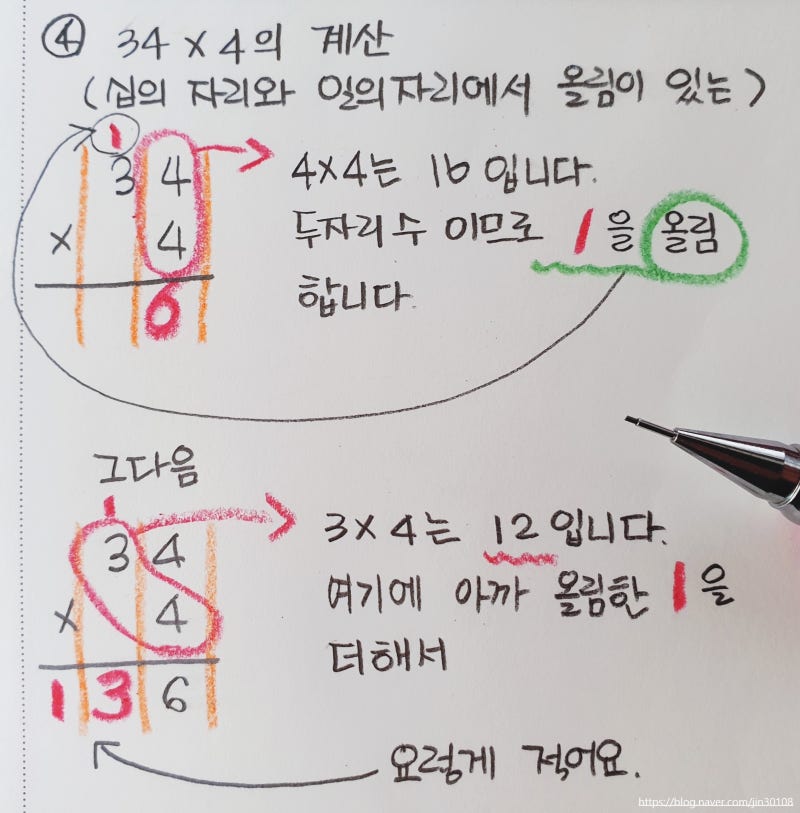 ④ 34 × 4의 계산
(십의 자리와 일의자리에서 올림이 있는)
1
3 4
× 4
6
4×4는 16 입니다.
두자리 수 이므로 1을 올림
합니다.
그다음
1
3 4
× 4
1 3 6
3×4는 12입니다.
여기에 아까 올림한 1을
더해서
요렇게 적어요.
https://blog.naver.com/jin30108